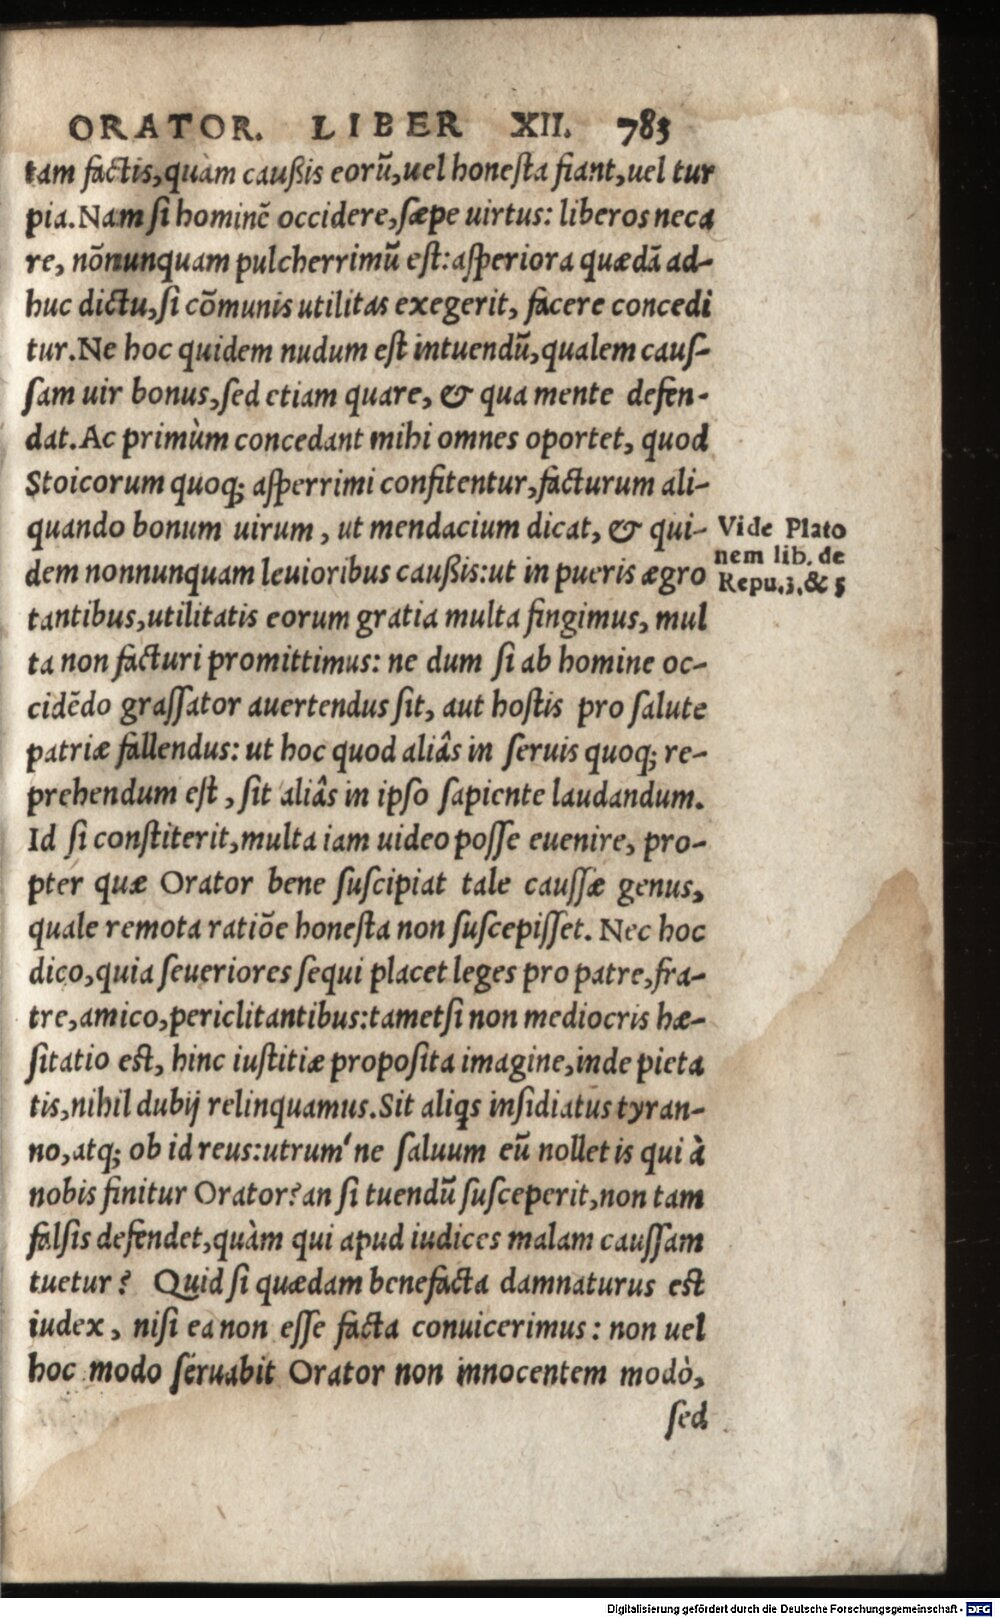 ORATOR. LIBER XII. 783
tam factis, quàm caußis eorũ, uel honesta fiant, uel tur
pia. Nam si hominẽ occidere, sæpe uirtus: liberos neca
re, nõnunquam pulcherrimũ est: asperiora quædã ad-
huc dictu, si cõmunis utilitas exegerit, facere concedi
tur. Ne hoc quidem nudum est intuendũ, qualem caus-
sam uir bonus, sed etiam quare, & qua mente defen-
dat. Ac primùm concedant mihi omnes oportet, quod
Stoicorum quoq; asperrimi confitentur, facturum ali-
quando bonum uirum, ut mendacium dicat, & qui-
dem nonnunquam leuioribus caußis: ut in pueris ægro
tantibus, utilitatis eorum gratia multa fingimus, mul
ta non facturi promittimus: ne dum si ab homine oc-
cidẽdo grassator auertendus sit, aut hostis pro salute
patriæ fallendus: ut hoc quod aliâs in seruis quoq; re-
prehendum est, sit aliâs in ipso sapiente laudandum.
Id si constiterit, multa iam uideo posse euenire, pro-
pter quæ Orator bene suscipiat tale caussæ genus,
quale remota ratiõe honesta non suscepisset. Nec hoc
dico, quia seueriores sequi placet leges pro patre, fra-
tre, amico, periclitantibus: tametsi non mediocris hæ-
sitatio est, hinc iustitiæ proposita imagine, inde pieta
tis, nihil dubij relinquamus. Sit aliqs insidiatus tyran-
no, atq; ob id reus: utrum'ne saluum eũ nollet is qui à
nobis finitur Orator? an si tuendũ susceperit, non tam
falsis defendet, quàm qui apud iudices malam caussam
tuetur? Quid si quædam benefacta damnaturus est
iudex, nisi ea non esse facta conuicerimus: non uel
hoc modo seruabit Orator non innocentem modò,
sed
Vide Plato
nem lib. de
Repu. 3. & 5
Digitalisierung gefördert durch die Deutsche Forschungsgemeinschaft - DFG